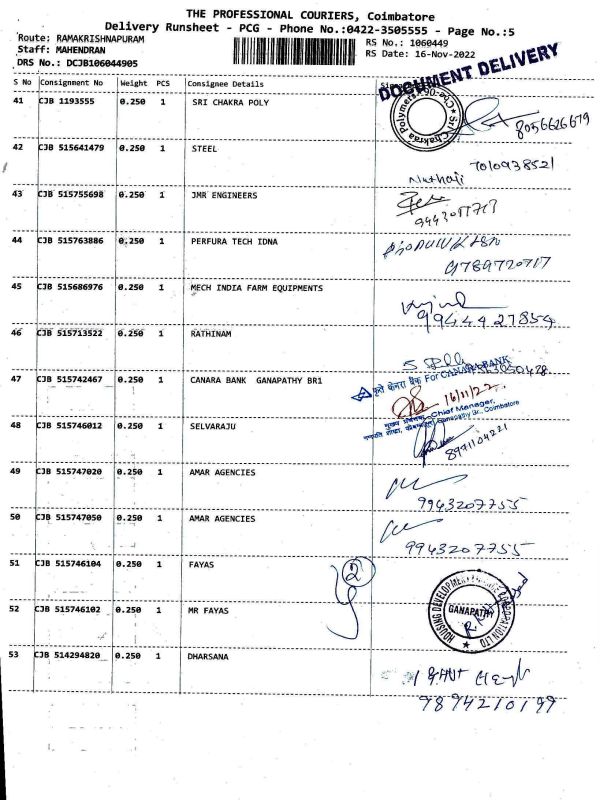 THE PROFESSIONAL COURIERS, Coimbatore
Delivery Runsheet - PCG - Phone No.:0422-3505555 - Page No.:5
Route: RAMAKRISHNAPURAM
RS No.: 1060449
Staff: MAHENDRAN
RS Date: 16-Nov-2022
DRS No.: DCJB106044905
DOCUMENT DELIVERY
S No Consignment No Weight PCS Consignee Details
41 CJB 1193555 0.250 1 SRI CHAKRA POLY
Sri Chakraa Polymers
8056626679
42 CJB 515641479 0.250 1 STEEL
7010938521
Nuthaji
43 CJB 515755698 0.250 1 JMR ENGINEERS
44 CJB 515763886 0.250 1 PERFURA TECH IDNA
9789720717
45 CJB 515686976 0.250 1 MECH INDIA FARM EQUIPMENTS
9944427854
46 CJB 515713522 0.250 1 RATHINAM
47 CJB 515742467 0.250 1 CANARA BANK GANAPATHY BR1
कृते केनरा बैंक For CANARA BANK
16/11/22
Chief Manager,
Ganapathy Br., Coimbatore
48 CJB 515746012 0.250 1 SELVARAJU
8971104221
49 CJB 515747020 0.250 1 AMAR AGENCIES
9943207755
50 CJB 515747050 0.250 1 AMAR AGENCIES
9943207755
51 CJB 515746104 0.250 1 FAYAS
2
HOUSING DEVELOPMENT FINANCE CORPORATION LTD
GANAPATHY
52 CJB 515746102 0.250 1 MR FAYAS
53 CJB 514294820 0.250 1 DHARSANA
9894210199